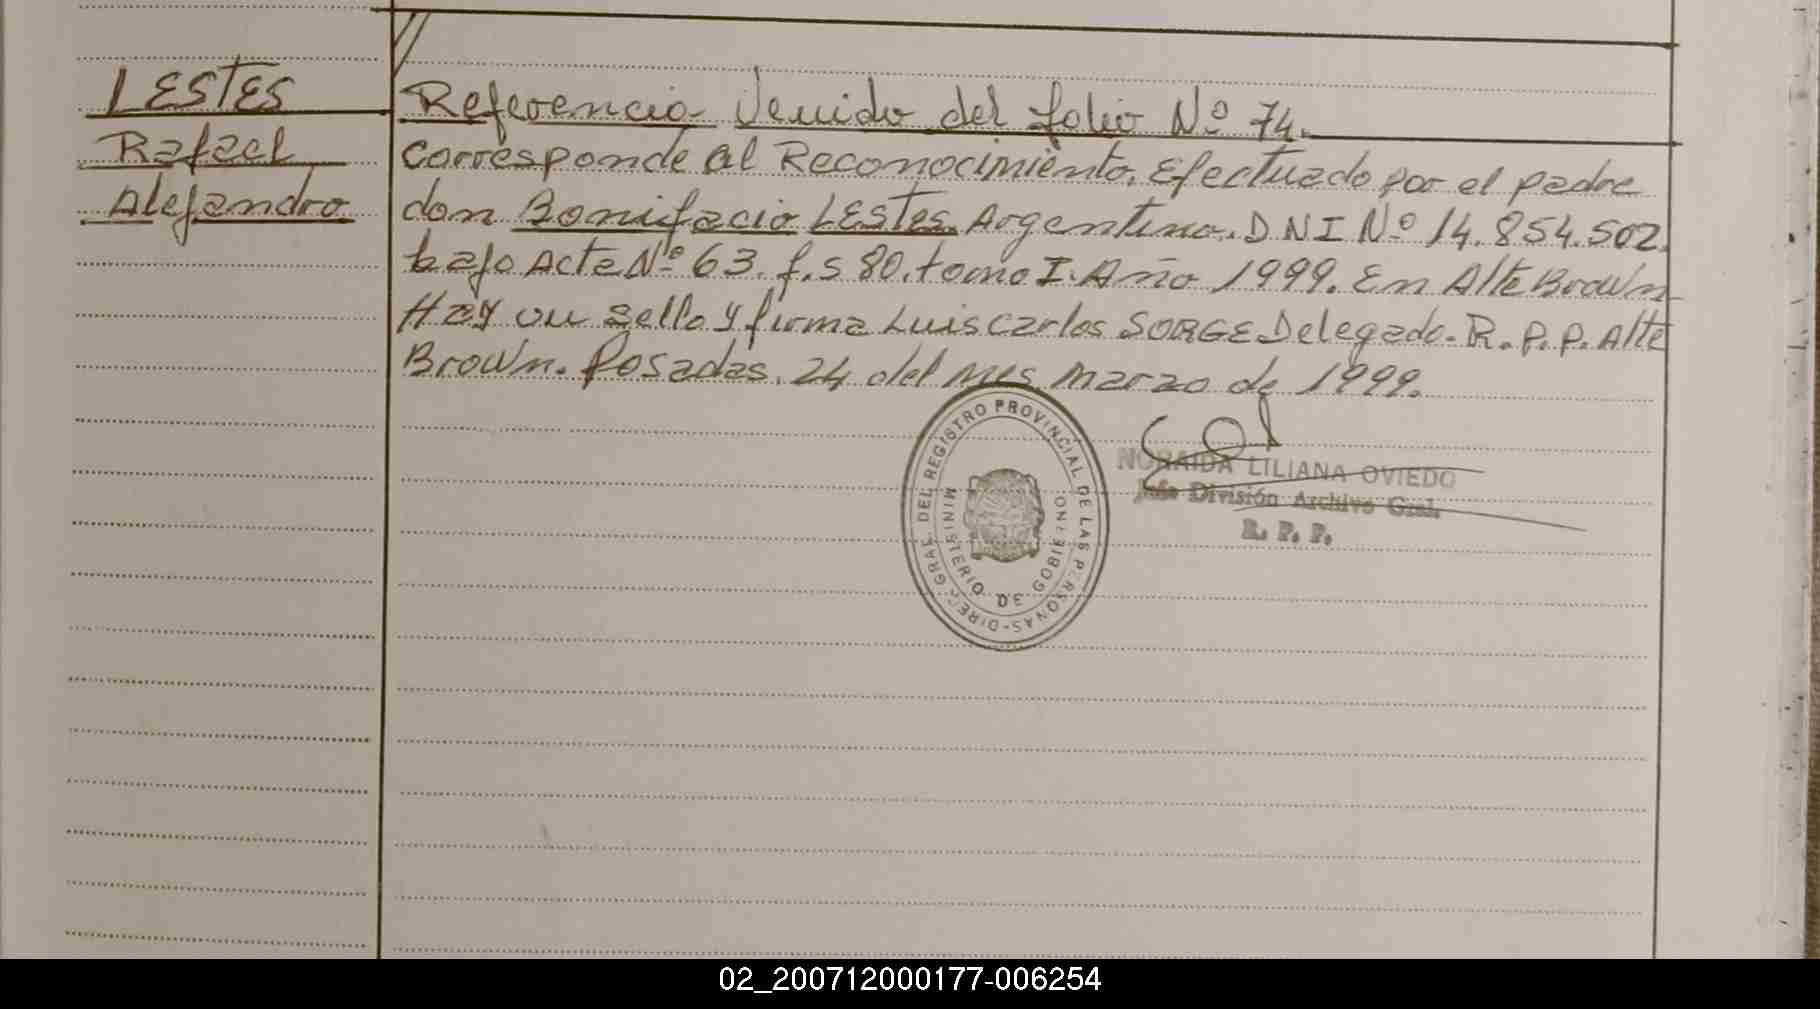 LESTES
Rafael
Alejandro
Referencia Venido del folio Nº 74.
corresponde al Reconocimiento. Efectuado por el padre
don Bonifacio LESTES. Argentino. DNI Nº 14.854.502.
bajo Acta Nº 63. f.s 80. tomo I. Año 1999. En Alte Brown
Hay un sello y firma Luis Carlos SORGE Delegado. R.P.P. Alte
Brown. Posadas. 24 del mes marzo de 1999.
DIREC. GRAL. DEL REGISTRO PROVINCIAL DE LAS PERSONAS
MINISTERIO DE GOBIERNO
NORAIDA LILIANA OVIEDO
Jefe División Archivo Gral.
R. P. P.
02_200712000177-006254